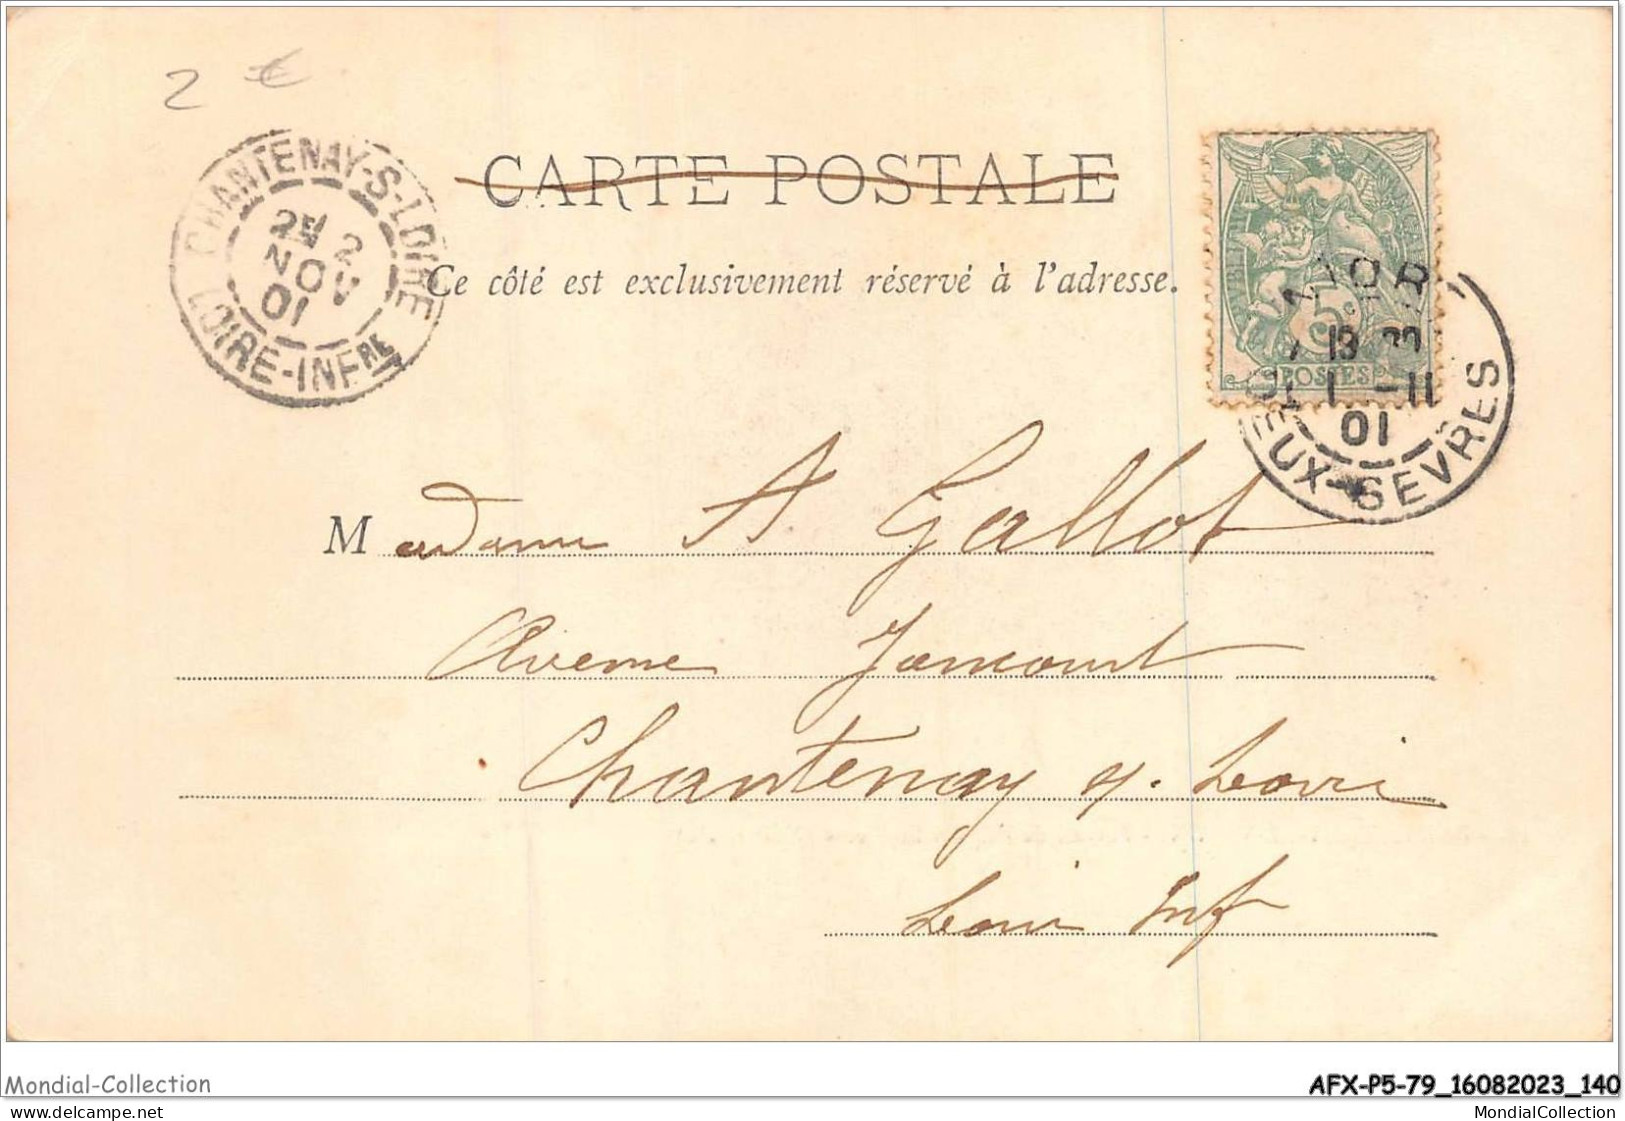 2 €
CHANTENAY-S-LOIRE
2E 2
NOV
01
LOIRE-INFRE
CARTE POSTALE
Ce côté est exclusivement réservé à l'adresse.
5c
POSTES
NIOR
1 -11
01
DEUX-SEVRES
Madame A Gallot
Avenue Jamcourt
Chantenay s. Loire
Loire Inf
Mondial-Collection
AFX-P5-79_16082023_140
MondialCollection